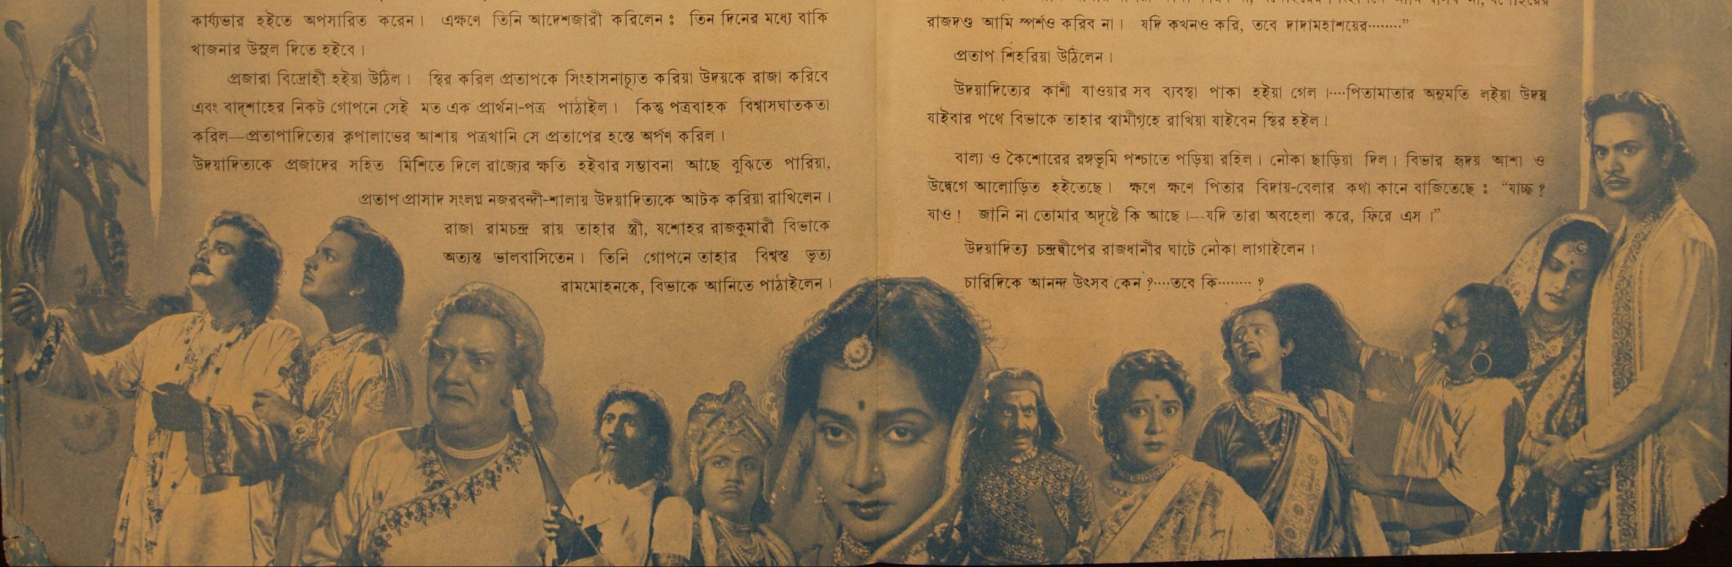 কার্য্যভার হইতে অপসারিত করেন। এক্ষণে তিনি আদেশজারী করিলেন : তিন দিনের মধ্যে বাকি
খাজনার উসুল দিতে হইবে।
প্রজারা বিদ্রোহী হইয়া উঠিল। স্থির করিল প্রতাপকে সিংহাসনচ্যুত করিয়া উদয়কে রাজা করিবে
এবং বাদ্‌শাহের নিকট গোপনে সেই মত এক প্রার্থনা-পত্র পাঠাইল। কিন্তু পত্রবাহক বিশ্বাসঘাতকতা
করিল—প্রতাপাদিত্যের কৃপালাভের আশায় পত্রখানি সে প্রতাপের হস্তে অর্পণ করিল।
উদয়াদিত্যকে প্রজাদের সহিত মিশিতে দিলে রাজ্যের ক্ষতি হইবার সম্ভাবনা আছে বুঝিতে পারিয়া,
প্রতাপ প্রাসাদ সংলগ্ন নজরবন্দী-শালায় উদয়াদিত্যকে আটক করিয়া রাখিলেন।
রাজা রামচন্দ্র রায় তাহার স্ত্রী, যশোহর রাজকুমারী বিভাকে
অত্যন্ত ভালবাসিতেন। তিনি গোপনে তাহার বিশ্বস্ত ভৃত্য
রামমোহনকে, বিভাকে আনিতে পাঠাইলেন।
রাজদণ্ড আমি স্পর্শও করিব না। যদি কখনও করি, তবে দাদামহাশয়ের········”
প্রতাপ শিহরিয়া উঠিলেন।
উদয়াদিত্যের কাশী যাওয়ার সব ব্যবস্থা পাকা হইয়া গেল।····পিতামাতার অনুমতি লইয়া উদয়
যাইবার পথে বিভাকে তাহার স্বামীগৃহে রাখিয়া যাইবেন স্থির হইল।
বাল্য ও কৈশোরের রঙ্গভূমি পশ্চাতে পড়িয়া রহিল। নৌকা ছাড়িয়া দিল। বিভার হৃদয় আশা ও
উদ্বেগে আলোড়িত হইতেছে। ক্ষণে ক্ষণে পিতার বিদায়-বেলার কথা কানে বাজিতেছে : “যাচ্ছ ?
যাও ! জানি না তোমার অদৃষ্টে কি আছে।—যদি তারা অবহেলা করে, ফিরে এস।”
উদয়াদিত্য চন্দ্রদ্বীপের রাজধানীর ঘাটে নৌকা লাগাইলেন।
চারিদিকে আনন্দ উৎসব কেন ?····তবে কি········ ?